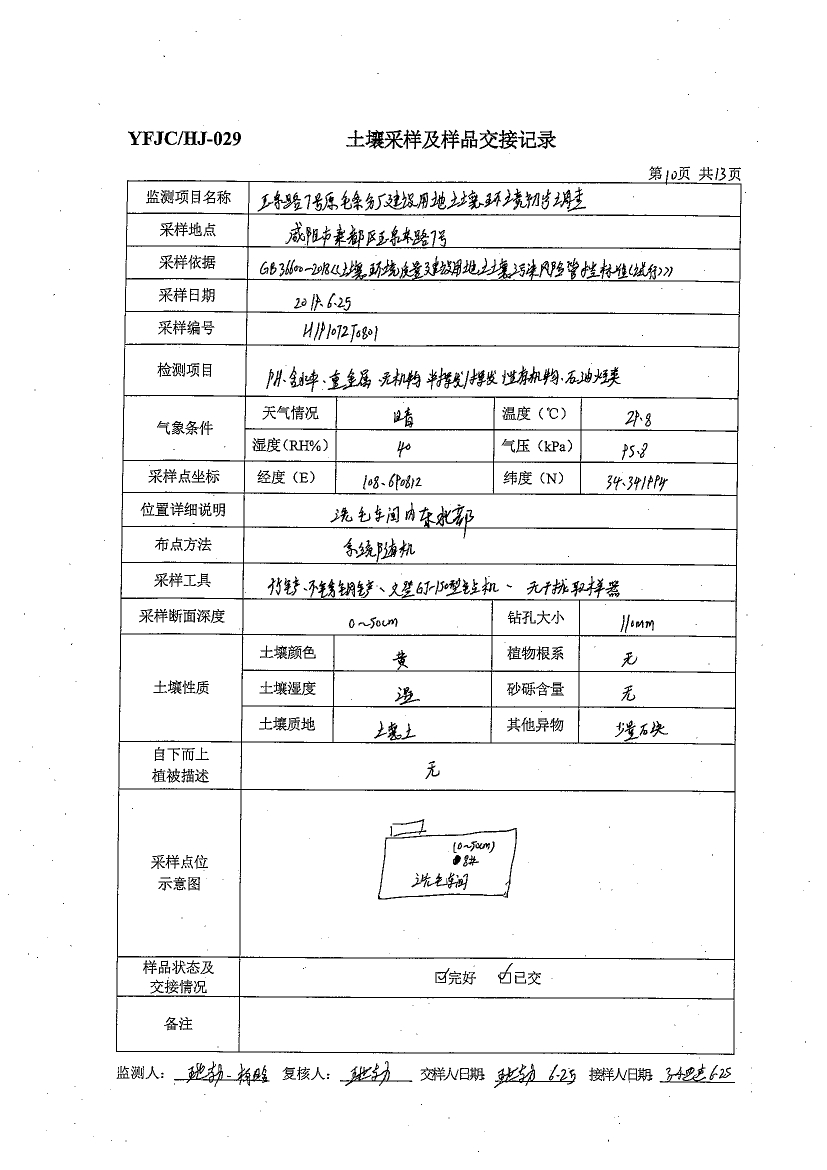 YFJC/HJ-029 土壤采样及样品交接记录
第10页 共13页
监测项目名称 路7号原毛条分厂建设用地土壤环境初步调查
采样地点 咸阳市秦都区 路7号
采样依据 GB36600-2018《土壤环境质量建设用地土壤污染风险管控标准(试行)》
采样日期 2019.6.25
采样编号 H191072T0801
检测项目 PH、含水率、重金属、无机物、半挥发/挥发性有机物、石油烃类
气象条件 天气情况 晴 温度(℃) 29.8
湿度(RH%) 40 气压(kPa) 95.8
采样点坐标 经度(E) 108.690812 纬度(N) 34.341994
位置详细说明 洗毛车间内东北部
布点方法 系统随机
采样工具 竹铲、不锈钢铲、 GJ-150型钻机、无干扰取样器
采样断面深度 0~50cm 钻孔大小 110mm
土壤性质 土壤颜色 黄 植物根系 无
土壤湿度 湿 砂砾含量 无
土壤质地 土壤土 其他异物 少量石块
自下而上
植被描述 无
采样点位
示意图
(0~50cm)
8#
洗毛车间
样品状态及
交接情况 ☑完好 ☑已交
备注
监测人: 复核人: 交样人/日期: 6.25 接样人/日期: 6.25